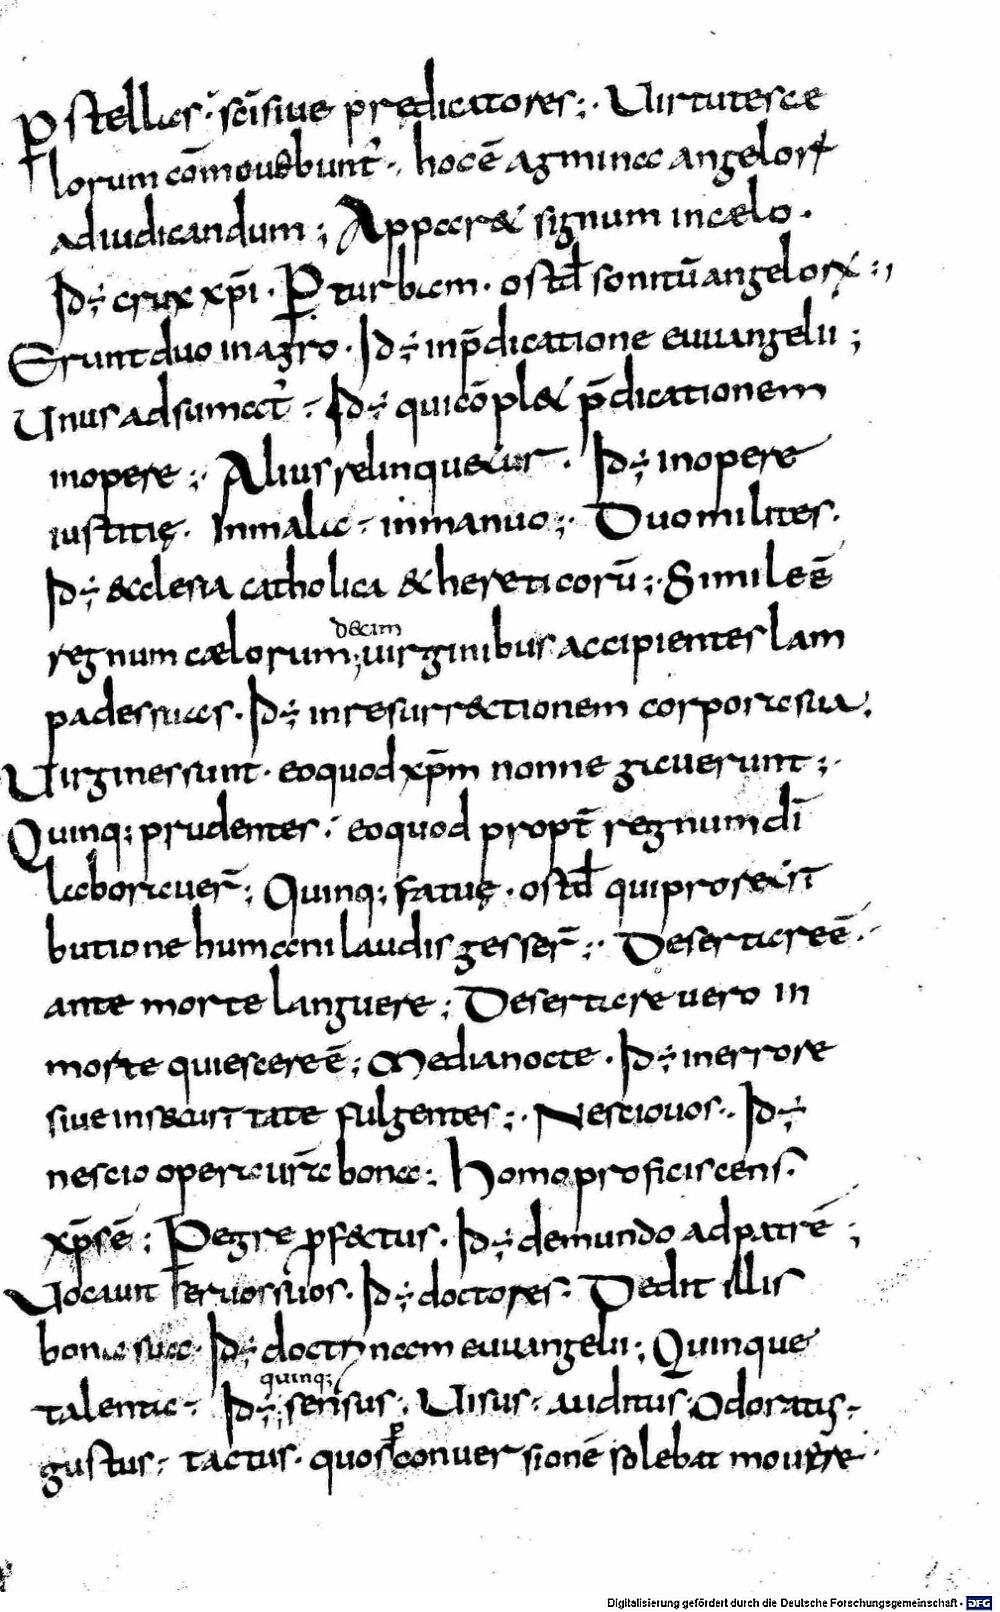 P̱ stellas · sc̄i siue predicatores ;· Uirtutes cae
lorum com̄ouebunt̄ ·, hoc ē agmina angelorꝝ
adiudicandum ; Apparet signum in cælo ·
Id÷ crux xp̄i · P̱ turbam · ostd̄ sonitū angelorꝝ :,
Erunt duo in agro · Id÷ in p̄dicatione euuangelii ;
Unus adsumat̄ ÷ Id÷ qui cōplet p̄dicationem
in opere ;· Alius relinquetur · Id÷ in opere
iustitię · In mala ÷ in manuo ;· Duo militer ·
Id÷ ecclesia catholica & hereticorū ;· Simile ē
regnum cælorum ; decim uirginibus accipientes lam
pades suas · Id÷ in resurrectionem corpora sua .
Uirgines sunt · eo quod xp̄m non negauerunt ;·
Quinq; prudentes ; eo quod propt̄ regnum dī
laborauer̄ ; Quinq; fatuę · ostd̄ qui pro retri
butione humani laudis gesser̄ ;· Desertare ē ·
ante morte languere ; Desertare uero in
morte quiescere ē ; Media nocte · Id÷ in errore
siue in securitate fulgentes ;· Nescio uos ·. Id÷
nescio opera ur̄a bona : Homo proficiscens ·
xp̄s ē ; Pegre ꝑfectus · Id÷ de mundo ad patrē ;
Uocauit seruos suos · Id÷ doctores · Dedit illis
bona sua · Id÷ doctrinam euuangelii ; Quinque
talenta ÷ Id÷ quinq; sensus · Uisus · auditus · Odoratus ÷
gustus ÷ tactus · quos ꝑ conuersionē solebat mouere ·